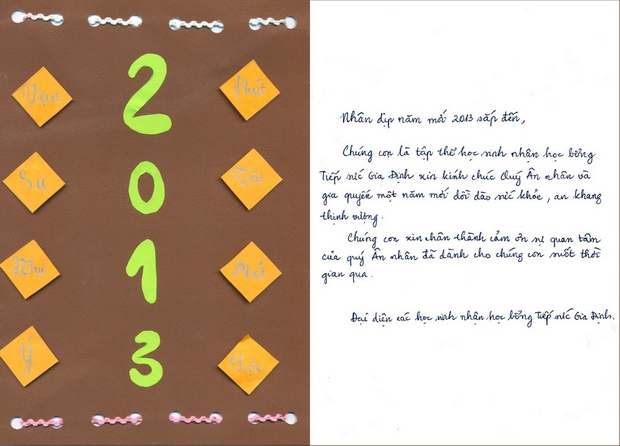 Vạn
Sự
Như
Ý
2
0
1
3
Phát
Tài
Phát
Nhân dịp năm mới 2013 sắp đến,
Chúng con là tập thể học sinh nhận học bổng
Tiếp sức Gia Định xin kính chúc Quý Ân nhân và
gia quyến một năm mới dồi dào sức khỏe, an khang
thịnh vượng.
Chúng con xin chân thành cảm ơn sự quan tâm
của quý Ân nhân đã dành cho chúng con suốt thời
gian qua.
Đại diện các học sinh nhận học bổng Tiếp sức Gia Định.